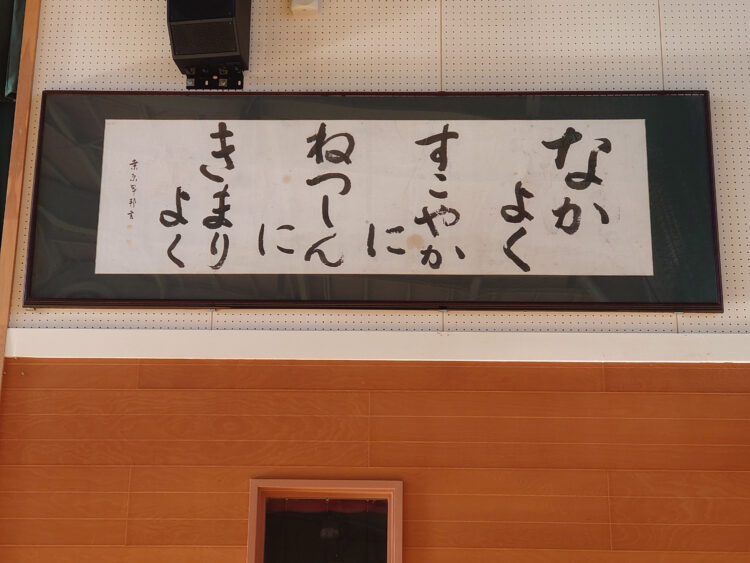 なか
よく
すこやか
に
ねつしん
に
きまり
よく